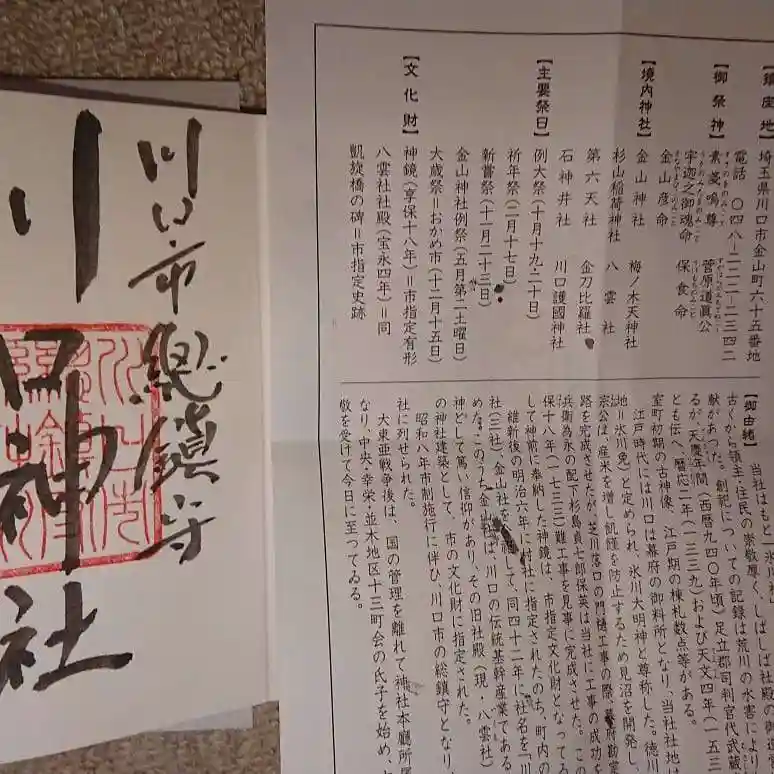 川口市 総鎮守
川口神社
【鎮座地】 埼玉県川口市金山町六十五番地
電話 〇四八-二二二-二三四二
【御祭神】 素戔嗚尊 菅原道真公
宇迦之御魂命 保食命
金山彦命
【境内神社】 金山神社 梅ノ木天神社
杉山稲荷神社 八雲社
第六天社 金刀比羅社
石神井社 川口護國神社
【主要祭日】 例大祭(十月十九・二十日)
祈年祭(二月十七日)
新嘗祭(十一月二十三日)
金山神社例祭(五月第二土曜日)
大歳祭=おかめ市(十二月十五日)
【文化財】 神鏡(享保十八年)=市指定有形
八雲社社殿(宝永四年)=同
凱旋橋の碑=市指定史跡
【御由緒】 当社はもと
古くから領主・住民の崇敬厚く、しばしば社殿の
献があった。創祀についての記録は荒川の水害により
るが、天慶年間(西暦九四〇年頃)足立郡司判官代武蔵
とも伝へ、暦応二年(一三三九)および天文四年(一五三
室町初期の古神像、江戸期の棟札数点等がある。
江戸時代には川口は幕府の御料所となり、当社社地も
地=氷川免)と定められ、氷川大明神と尊称した。徳川
宗公は、産米を増し飢饉を防止するため見沼を開発し、
路を完成させたが、芝川落口の門樋工事の際、幕府勘定
兵衛為永の配下杉島貞七郎保英は当社に工事の成功を
保十八年(一七三三)難工事を見事に完成させた。この
して神前に奉納した神鏡は、市指定文化財となってゐ
維新後の明治六年に村社に指定されたのち、町内の
社(三社)、金山社を して、同四十二年に社名を「川
めた。このうち金山社は、川口の伝統基幹産業である
神として篤い信仰があり、その旧社殿(現・八雲社)
の神社建築として、市の文化財に指定された。
昭和八年市制施行に伴ひ、川口市の総鎮守となり
社に列せられた。
大東亜戦争後は、国の管理を離れて神社本廳所属
なり、中央・幸栄・並木地区十三町会の氏子を始め、
敬を受けて今日に至ってゐる。